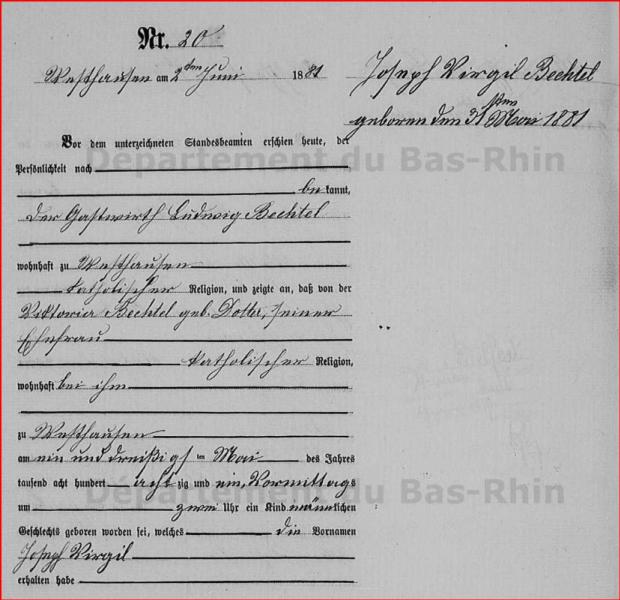 Nr. 20
Westhausen am 2ten Juni 1881
Joseph Virgil Bechtel
geboren den 31sten Mai 1881
Vor dem unterzeichneten Standesbeamten erschien heute, der
Persönlichkeit nach
Département du Bas-Rhin
bekannt,
der Gastwirth Ludwig Bechtel
wohnhaft zu Westhausen
katholischer Religion, und zeigte an, daß von der
Viktoria Bechtel geb. Dotter, seiner
Ehefrau
katholischer Religion,
wohnhaft bei ihm
zu Westhausen
am ein und dreißigsten Mai des Jahres
tausend acht hundert achtzig und ein, Vormittags
Département du Bas-Rhin
um zwei Uhr ein Kind männlichen
Geschlechts geboren worden sei, welches die Vornamen
Joseph Virgil
erhalten habe